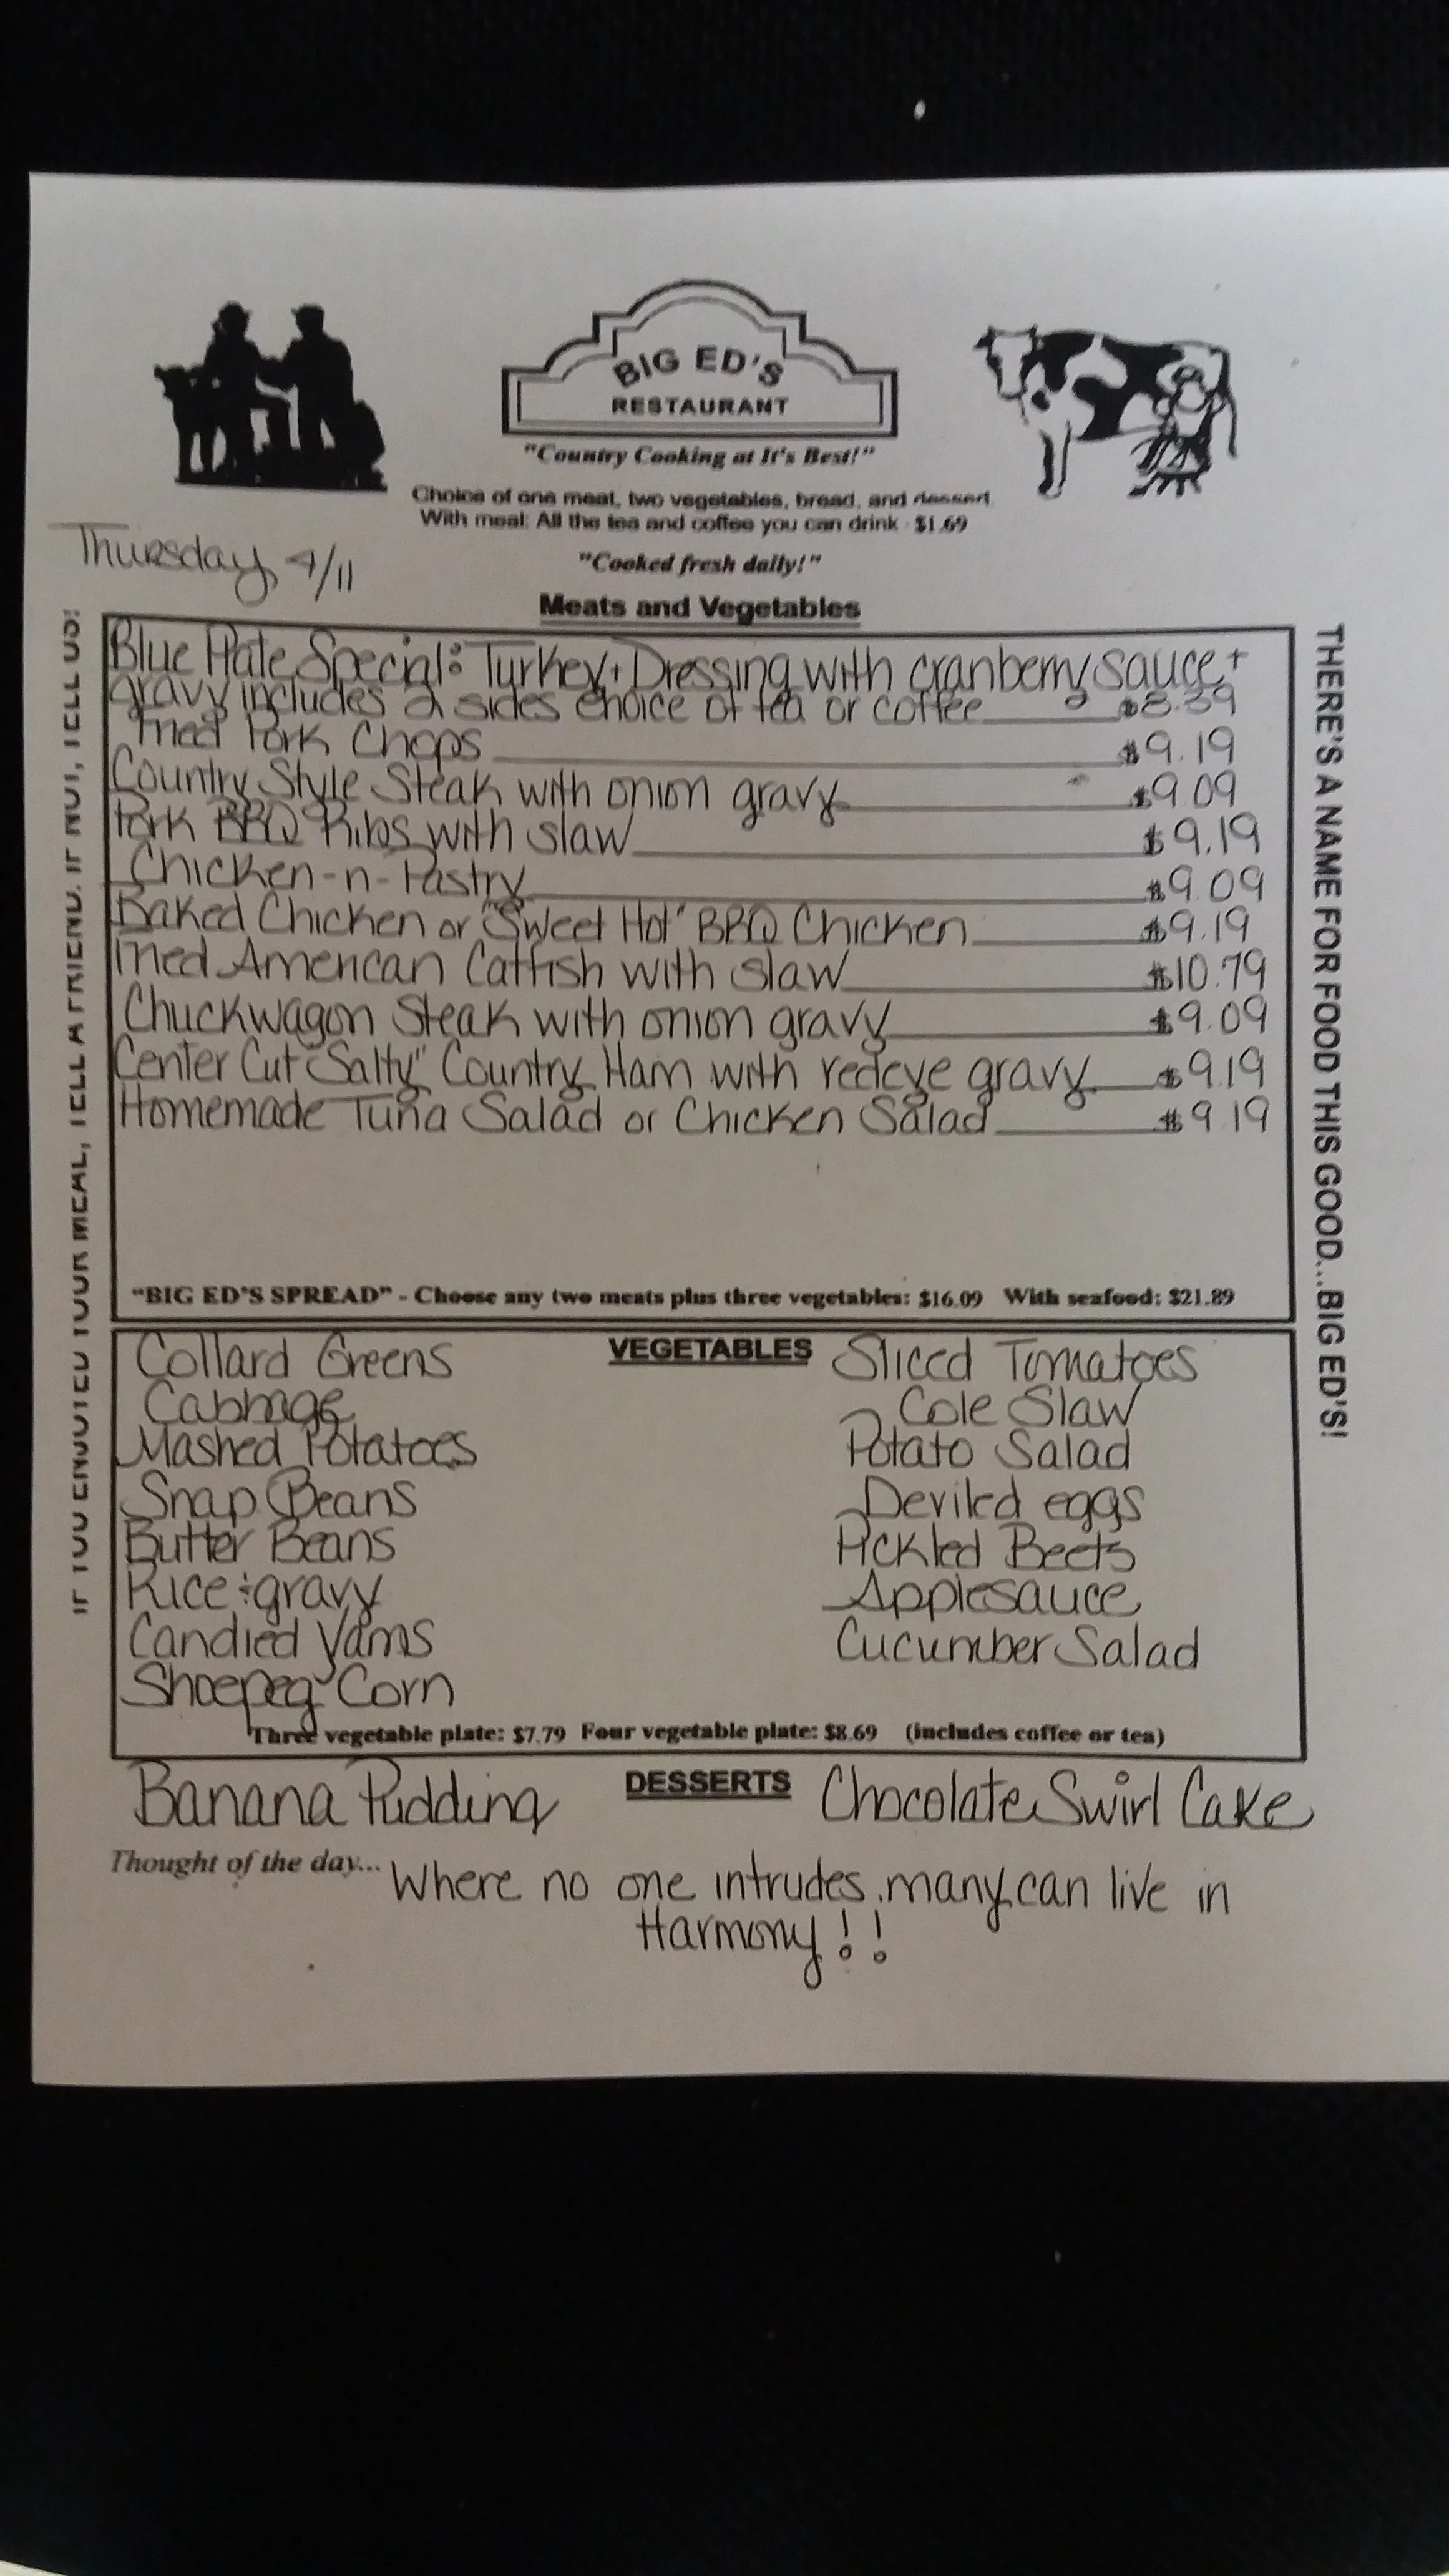 BIG ED'S
RESTAURANT
"Country Cooking at It's Best!"
Choice of one meat, two vegetables, bread, and dessert.
With meal: All the tea and coffee you can drink - $1.69
Thursday 4/11
"Cooked fresh daily!"
Meats and Vegetables
IF YOU ENJOYED YOUR MEAL, TELL A FRIEND. IF NOT, TELL US!
Blue Plate Special: Turkey + Dressing with cranberry sauce +
gravy includes 2 sides choice of tea or coffee $8.39
Fried Pork Chops $9.19
Country Style Steak with onion gravy $9.09
Pork BBQ Ribs with slaw $9.19
Chicken-n-Pastry $9.09
Baked Chicken or "Sweet Hot" BBQ Chicken $9.19
Fried American Catfish with slaw $10.79
Chuckwagon Steak with onion gravy $9.09
Center Cut "Salty" Country Ham with redeye gravy $9.19
Homemade Tuna Salad or Chicken Salad $9.19
"BIG ED'S SPREAD" - Choose any two meats plus three vegetables: $16.09 With seafood: $21.89
THERE'S A NAME FOR FOOD THIS GOOD...BIG ED'S!
VEGETABLES
Collard Greens
Cabbage
Mashed Potatoes
Snap Beans
Butter Beans
Rice + gravy
Candied Yams
Shoepeg Corn
Sliced Tomatoes
Cole Slaw
Potato Salad
Deviled eggs
Pickled Beets
Applesauce
Cucumber Salad
Three vegetable plate: $7.79 Four vegetable plate: $8.69 (includes coffee or tea)
DESSERTS
Banana Pudding
Chocolate Swirl Cake
Thought of the day... Where no one intrudes, many can live in
Harmony!!